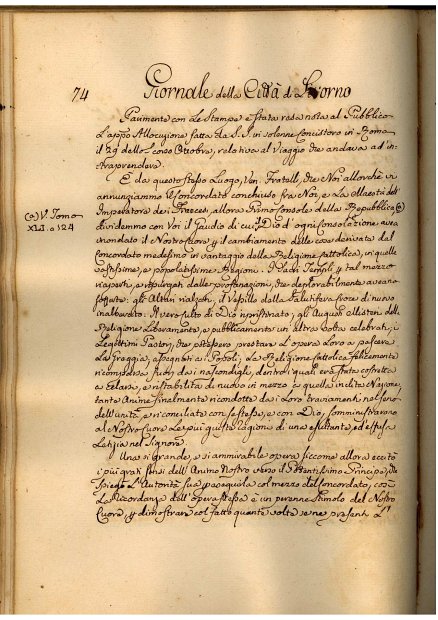 74 Giornale della Città di Livorno
Parimente con Le Stampe è stata resa nota al Pubblico
L'appo Allocuzione fatta da S.S. in solenne Concistoro in Roma
il 29 dello scorso Ottobre, relativa al Viaggio che andava ad in-
traprendere.
E da questo stesso Luogo, Ven. Fratelli, che Noi allorché vi
annunziammo il Concordato conchiuso fra Noi, e La Maestà dell'
Imperatore dei Francesi, allora Primo Console della Repubblica (a)
(a) V. Tomo
XLI. a 124
dividemmo con Voi il gaudio di cui, Dio d'ogni Consolazione avea
inondato il Nostro Cuore pel cambiamento delle cose derivate dal
Concordato medesimo in vantaggio della Religione Cattolica, in quelle
vastissime, e popolatissime Regioni. I Sacri Templj tal mezzo
riaperti, e ripurgati dalle profanazioni, che deplorabilmente aveano
sofferte: gli Altari rialzati, il Vessillo della Salutifera Croce di nuovo
inalberato. Il vero culto di Dio ripristinato; gli Augusti Misteri della
Religione Liberamente, e pubblicamente un'altra volta celebrati, i
Legittimi Pastori, che potessero prestare L'opera Loro a pascere
La Greggia, assegnati ai Popoli; La Religione Cattolica felicemente
ricomparsa fuori dai nascondigli, dentro i quali era stata costretta
a celarsi, e ristabilita di nuovo in mezzo a quella inclita Nazione,
tante Anime finalmente ricondotte da i Loro traviamenti nel seno
dell'unità, e riconciliate con se stesse, e con Dio, somministravano
al Nostro Cuore Le più giuste cagioni di una esultante, ed estesa
Letizia nel Signore.
Una si grande, e si ammirabile opera siccome allora eccitò
i più grati sensi dell'Animo Nostro verso il Potentissimo Principe, che
spiegò L'Autorità sua per eseguirla col mezzo del Concordato, così
La Ricordanza dell'opera stessa è un perenne stimolo del Nostro
Cuore, a dimostrare col fatto quante volte se ne presenti L'